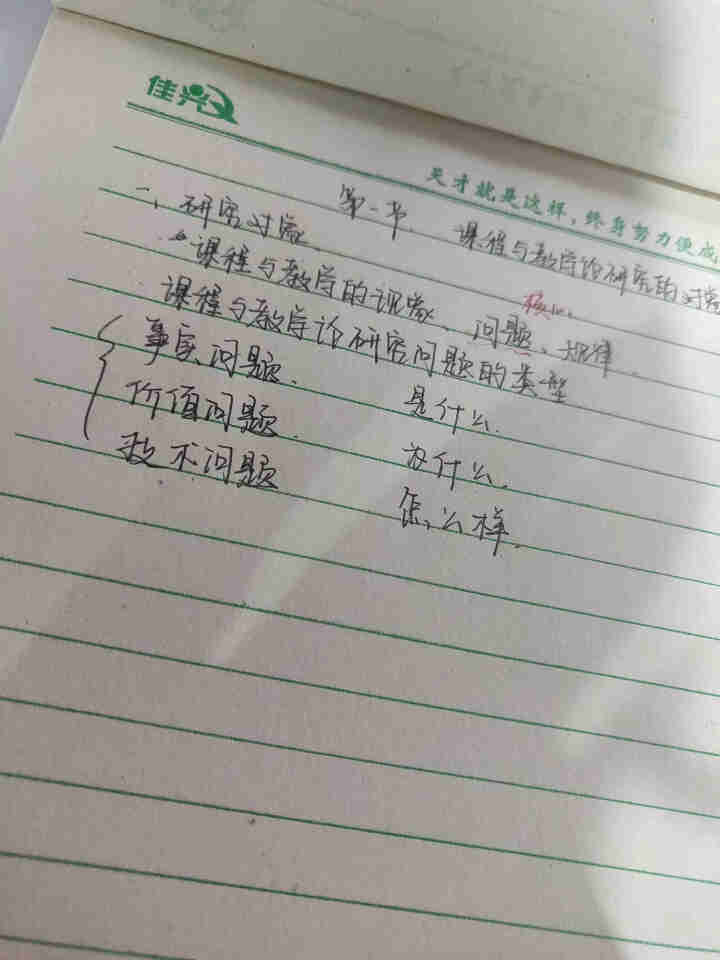 佳兴
天才就是这样，终身努力便成
第一节. 课程与教学论研究的对象
一、研究对象.
课程与教学的现象、问题、规律.
核心.
课程与教学论研究问题的类型
事实问题. 是什么.
价值问题. 为什么.
技术问题 怎么样.